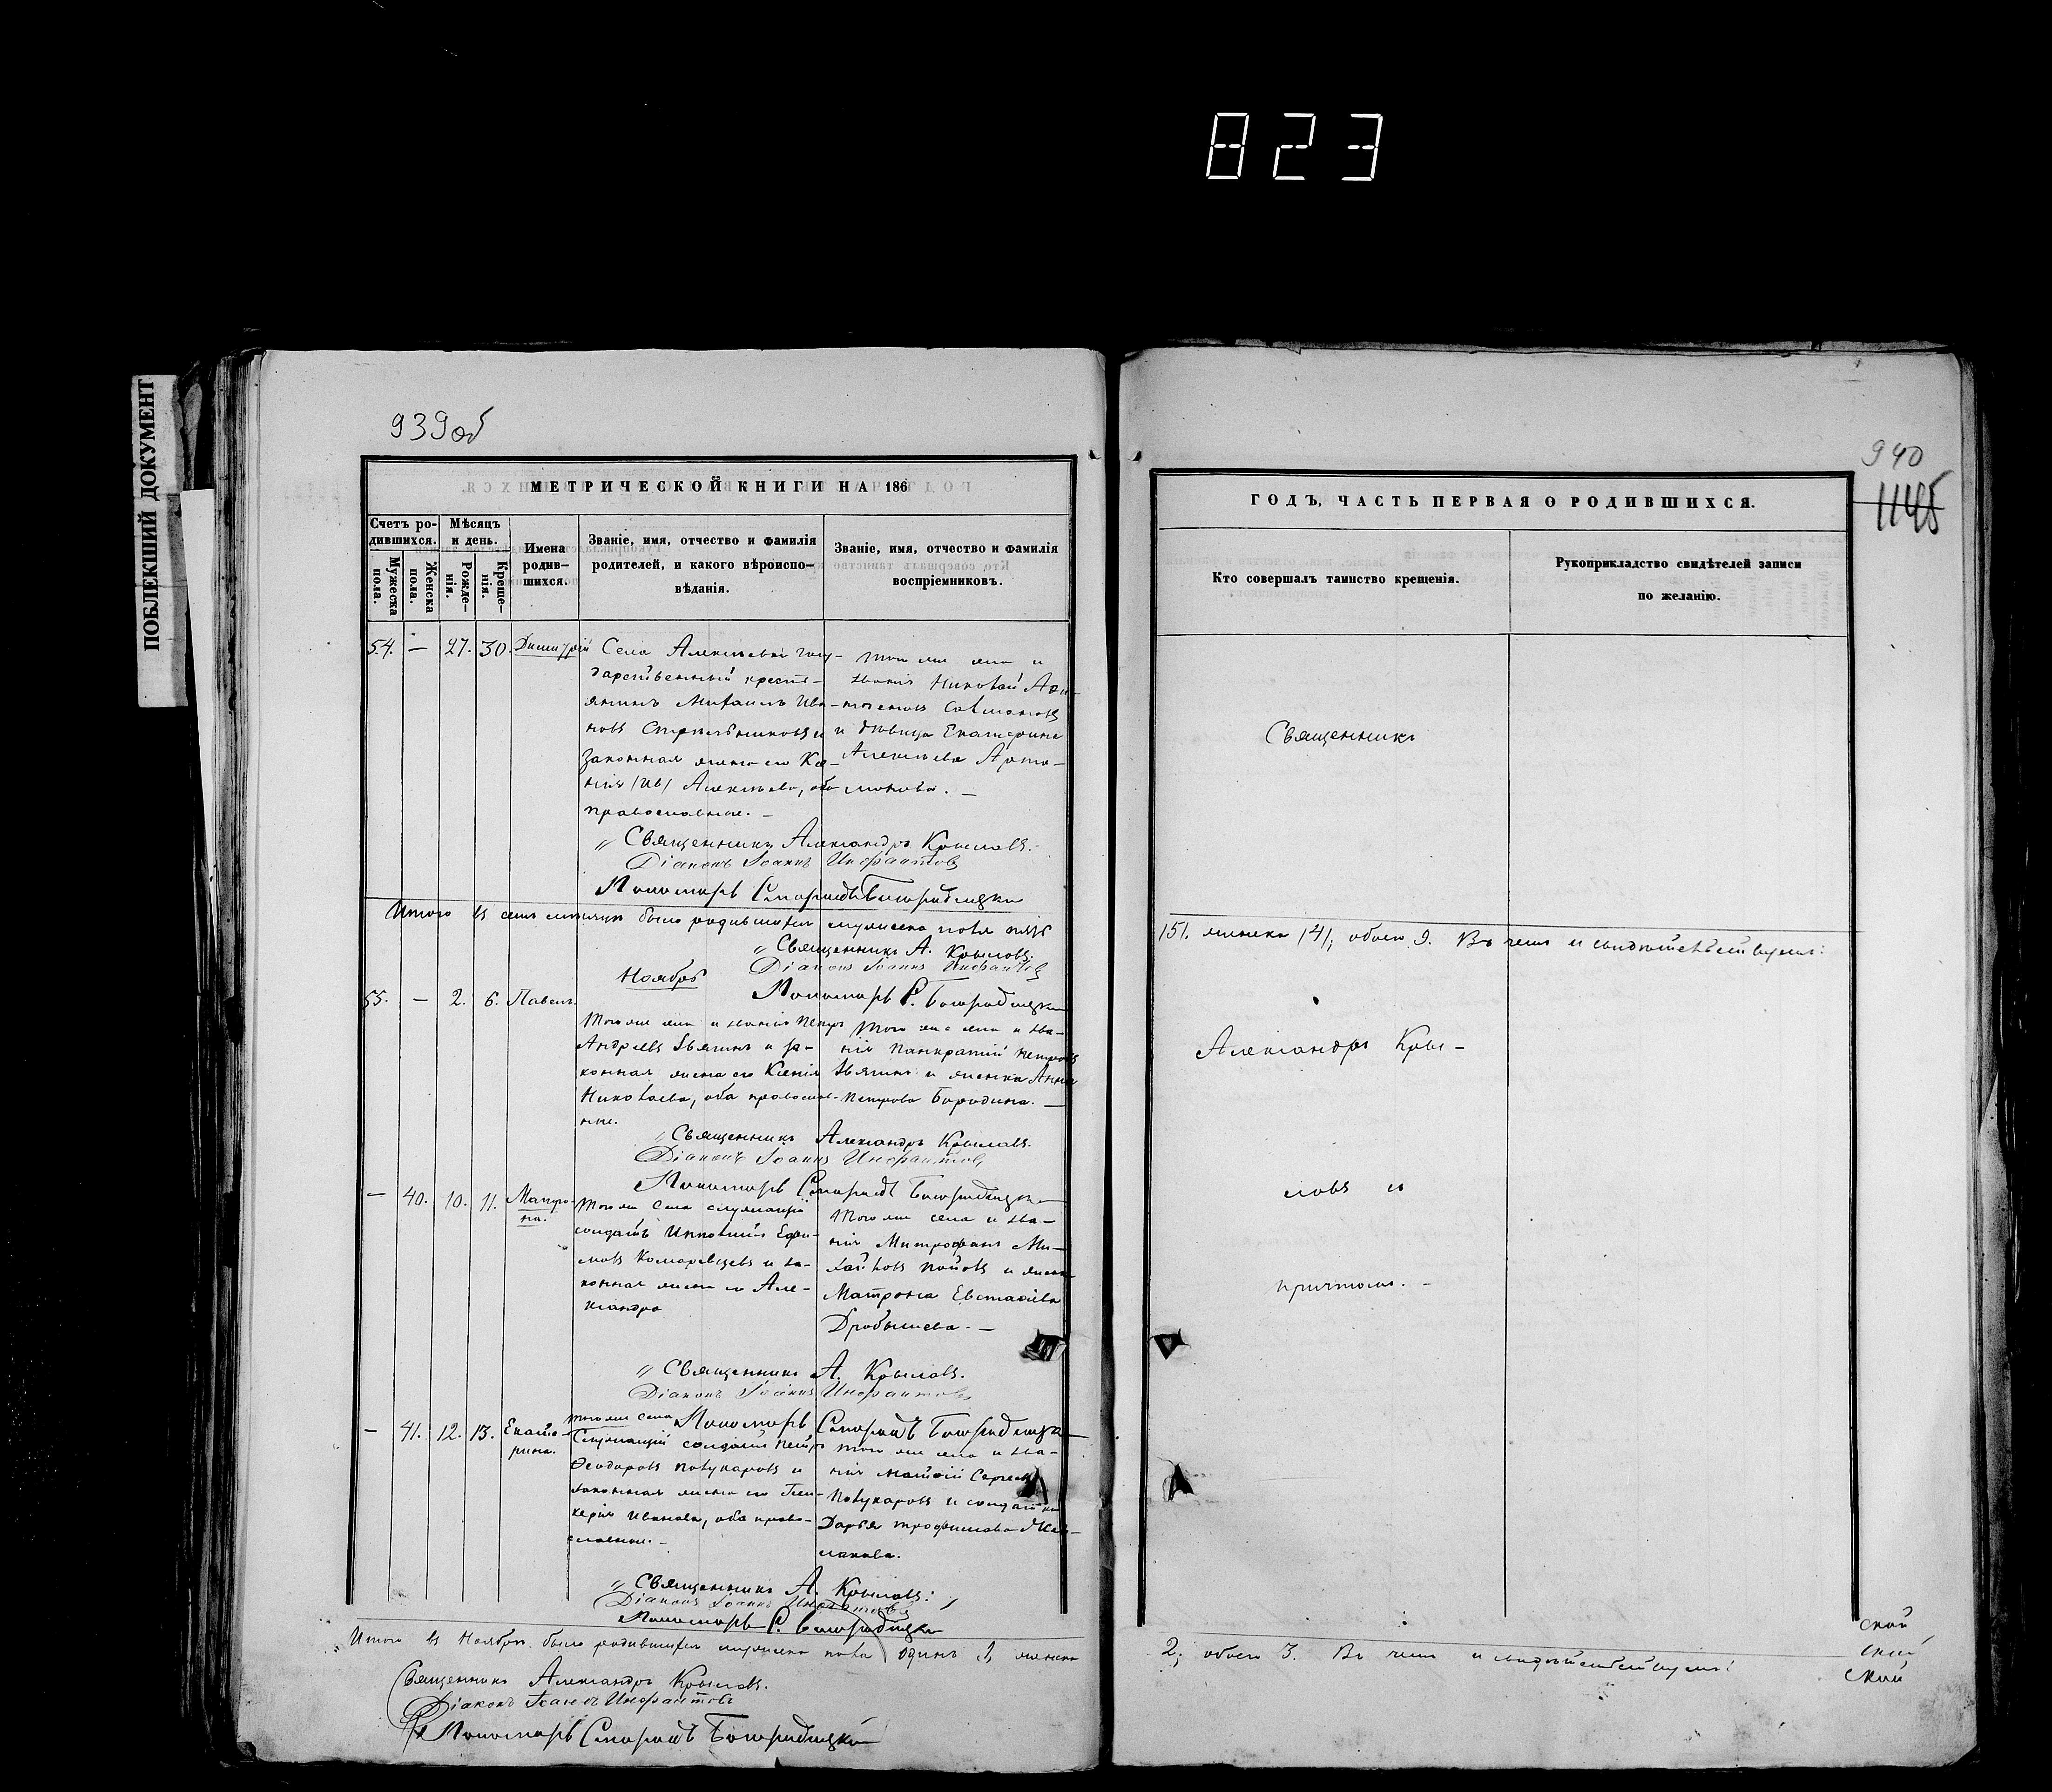 823
ПОБЛЕКШИЙ ДОКУМЕНТ
939об
МЕТРИЧЕСКОЙ КНИГИ НА 186
Счетъ ро-
дившихся.
Мужеска
пола.
Женска
пола.
Мѣсяцъ
и день.
Рожде-
нія.
Креще-
нія.
Имена
родив-
шихся.
Званіе, имя, отчество и фамилія
родителей, и какого вѣроиспо-
вѣданія.
Званіе, имя, отчество и фамилія
воспріемниковъ.
54. — 27. 30. Димитрій
Села Алексѣевки госу-
дарственный кресть-
янинъ Михаилъ Ива-
новъ Стрѣльниковъ и
законная жена его Ксе-
нія Алексѣева, оба
православные. —
Того же села и
званія Николай
и дѣвица Екатерина
Алексѣева Арта-
монова. —
Священникъ Александръ Крыловъ.
Діаконъ Іоаннъ Инфантовъ
Пономарь Спиридъ Богородицкій
Итого въ семъ мѣсяцѣ было родившихся мужеска пола пять
Священникъ А. Крыловъ.
Діаконъ Іоаннъ Инфантовъ
Пономарь С. Богородицкій
Ноябрь
55. — 2. 6. Павелъ.
Того же села и званія Петръ
Андреевъ Звягинъ и за-
конная жена его Ксенія
Николаева, оба православ-
ные.
Того же села и зва-
нія Панкратій Петровъ
Звягинъ и женка Анна
Петрова Бородина. —
Священникъ Александръ Крыловъ.
Діаконъ Іоаннъ Инфантовъ
Пономарь Спиридъ Богородицкій
— 40. 10. 11. Матро-
на.
Того же села служащій
солдатъ Ефи-
мовъ Комаревцевъ и за-
конная жена его Але-
ксандра
Того же села и зва-
нія Митрофанъ Ми-
хайловъ Поповъ и женка
Матрона Евстафіева
Дробышева. —
Священникъ А. Крыловъ.
Діаконъ Іоаннъ Инфантовъ
Пономарь Спиридъ Богородицкій
— 41. 12. 13. Екате-
рина.
Того же села
Служащій солдатъ Петръ
Ѳеодоровъ Полукаровъ и
законная жена его Гли-
керія Иванова, оба право-
славные. —
Того же села и зва-
нія Матѳій Сергеевъ
Полукаровъ и солдатка
Дарья Трофимова
Священникъ А. Крыловъ.
Діаконъ Іоаннъ Инфантовъ
Пономарь С. Богородицкій
Итого въ Ноябрѣ было родившихся мужеска пола одинъ 1, женска
Священникъ Александръ Крыловъ.
Діаконъ Іоаннъ Инфантовъ
Пономарь Спиридъ Богородицкій
940
1145
ГОДЪ, ЧАСТЬ ПЕРВАЯ О РОДИВШИХСЯ.
Кто совершалъ таинство крещенія.
Рукоприкладство свидѣтелей записи
по желанію.
Священникъ
/5/. женска /4/; обоего 9. Въ чемъ и свидѣтельствуемъ:
Александръ Кры-
ловъ съ
причтомъ. —
2; обоего 3. Въ чемъ и свидѣтельствуемъ:
ской
ской
ской